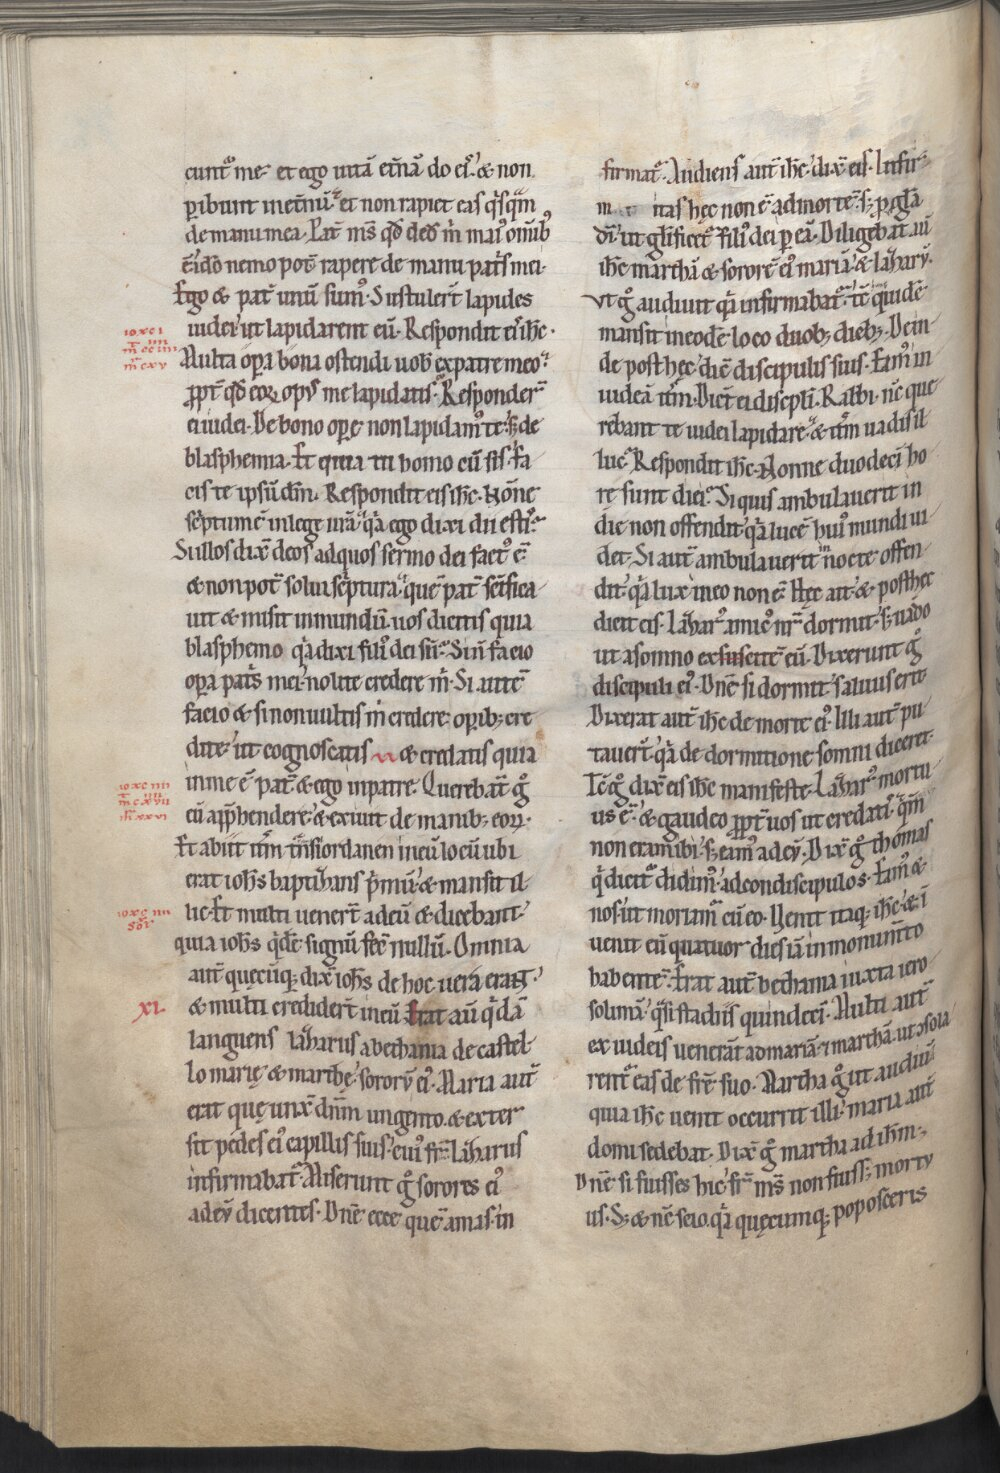 cunt᷑ me· et ego uitā et̄nā do eis· & non
ꝑibunt inet̄nū· et non rapiet eas q̇sq̄m
de manu mea· Pat̄ m̄s qđ ded̄ m̄ mai᷒ omīb᷒
ē· idō nemo pot̄ rapere de manu pat̄s mei·
Ego & pat̄ unū sum᷒· Sustuler̄t lapides
iudei· ut lapidarent eū· Respondit eis ihc·
Multa oꝑa bona ostendi uob̄ expatre meo·
ꝓpt̄ qđ eoꝝ op᷒ me lapidatis· Responder̄
ei iudei· De bono oꝑe non lapidam᷒ te· s; de
blasphemia· Et quia tu homo cū sis· fa
cis te ipsū dm̄· Respondit eis ihc· Nōne
sc̄ptum ē inlege urā· q̇a ego dixi dii estis·
Si illos dix̄ deos adquos sermo dei fact᷒ ē
& non pot̄ solui sc̄ptura· quē pat̄ sc̄ifica
uit & misit inmundū· uos dicitis quia
blasphemo q̇a dixi fili᷒ dei sū· Si n̄ facio
oꝑa pat̄s mei· nolite credere m̄· Si autē
facio & si non uultis m̄ credere· oꝑib; cre
dite· ut cognoscatis & credatis quia
inme ē pat̄ & ego inpatre· Querebāt g̊
eū app̄hendere· & exiuit de manib; eoꝝ·
Et abiit it̄m t̄nsiordanen ineū locū ubi
erat ioh̄s baptiħans p̄mū· & mansit il
lic· Et multi uener̄t adeū & dicebant·
quia ioh̄s q̇dē signū fec̄ nullū· Omnia
aut̄ quęcūq; dix̄ ioh̄s de hoc uera erant·
xi
& multi credider̄t ineū Erat aū q̇dā
languens laħarus abethania de castel
lo marię & marthę sororū ei᷒· Maria aut̄
erat quę unx̄ dn̄m ungento· & exter
sit pedes ei᷒ capillis suis· cui᷒ fr̄ laħarus
infirmabat᷑· Miserunt g̊ sorores ei᷒
adeū dicentes· Dn̄e ecce quē amas· in
firmat᷑· Audiens aut̄ ihc· dix̄ eis· Infir
m tas hęc non ē admortē· s; ꝓ gl̄a
dī· ut gl̄ificet᷑ fili᷒ dei ꝑ eā· Diligebat aū
ihc marthā & sororē ei᷒ mariā· & laħarū·
Vt g̊ audiuit q̇a infirmabat᷑· tc̄ q̇idē
mansit ineodē loco duob; dieb;· Dein
de post hęc· diē discipulis suis· Eam᷒ in
iudeā it̄m· Dic̄t ei discipl̄i· Rabbi· nc̄ que
rebant te iudei lapidare· & it̄m uadis il
luc· Respondit ihc· Nonne duodeci ho
re sunt diei· Si quis ambulauerit in
die non offendit· q̇a lucē hui᷒ mundi ui
det· Si aut̄ ambulauerit innocte· offen
dit· q̇a lux ineo non ē· Hęc ait· & posthęc
dicit eis· Laħar᷒ amic᷒ nr̄ dormit· s; uado
ut asomno exsuscitē eū· Dixerunt g̊
discipuli ei᷒· Dn̄e si dormit· saluus erit·
Dixerat aut̄ ihc de morte ei᷒· Illi aut̄ pu
tauer̄t· q̇a de dormitione somni diceret·
Tc̄ g̊ dix̄ eis ihc manifeste· Laħar᷒ mortu
us ē· & gaudeo ꝓpt̄ uos ut credatis· q̄m
non eram ibi· s; eam᷒ adeū· Dix̄ g̊ thomas
q̇ dicit᷑ didim᷒· adcondiscipulos· Eam᷒ &
nos· ut moriam᷑ cū eo· Uenit itaq; ihc· & ī
uenit eū quatuor dies iā inmonumto
habentē· Erat aut̄ bethania iuxta iero
solimā· q̇si stadiis quindeci· Multi aut̄
ex iudeis ueneranī admariā· & marthā· ut ↄsola
rent᷑ eas de fr̄e suo· Martha g̊ ut audiuit
quia ihc uenit occurrit illi· maria aut̄
domi sedebat· Dix̄ g̊ martha ad ihm·
Dn̄e si fuisses hic· fr̄ ms̄ non fuiss; mortu
us· S; & nc̄ scio· q̇a quęcumq; poposceris